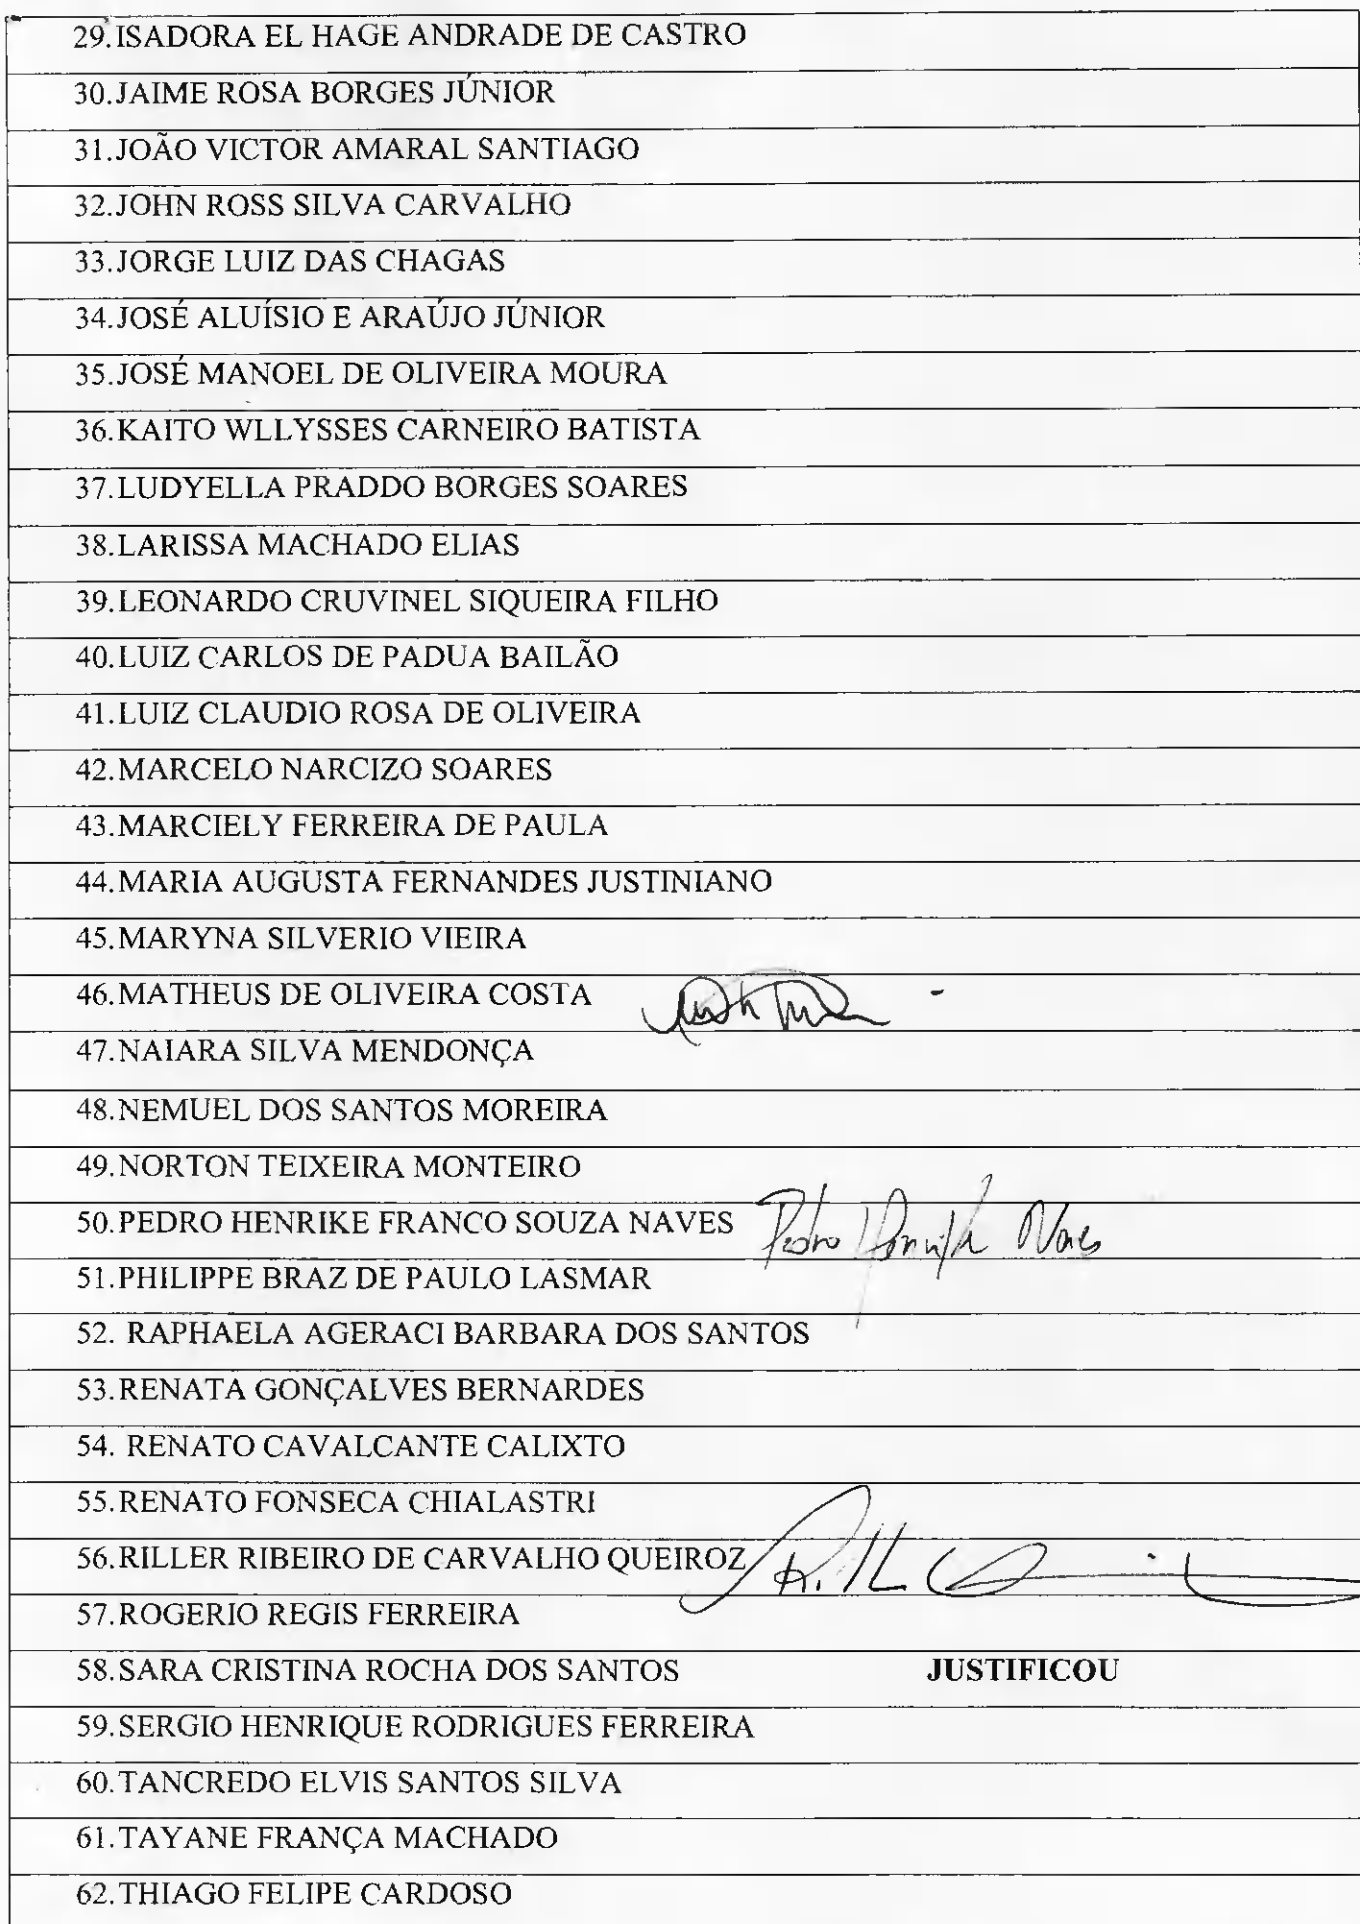 29.ISADORA EL HAGE ANDRADE DE CASTRO
30.JAIME ROSA BORGES JÚNIOR
31.JOÃO VICTOR AMARAL SANTIAGO
32.JOHN ROSS SILVA CARVALHO
33.JORGE LUIZ DAS CHAGAS
34.JOSÉ ALUÍSIO E ARAÚJO JÚNIOR
35.JOSÉ MANOEL DE OLIVEIRA MOURA
36.KAITO WLLYSSES CARNEIRO BATISTA
37.LUDYELLA PRADDO BORGES SOARES
38.LARISSA MACHADO ELIAS
39.LEONARDO CRUVINEL SIQUEIRA FILHO
40.LUIZ CARLOS DE PADUA BAILÃO
41.LUIZ CLAUDIO ROSA DE OLIVEIRA
42.MARCELO NARCIZO SOARES
43.MARCIELY FERREIRA DE PAULA
44.MARIA AUGUSTA FERNANDES JUSTINIANO
45.MARYNA SILVERIO VIEIRA
46.MATHEUS DE OLIVEIRA COSTA
47.NAIARA SILVA MENDONÇA
48.NEMUEL DOS SANTOS MOREIRA
49.NORTON TEIXEIRA MONTEIRO
50.PEDRO HENRIKE FRANCO SOUZA NAVES Pedro Henrike Naves
51.PHILIPPE BRAZ DE PAULO LASMAR
52. RAPHAELA AGERACI BARBARA DOS SANTOS
53.RENATA GONÇALVES BERNARDES
54. RENATO CAVALCANTE CALIXTO
55.RENATO FONSECA CHIALASTRI
56.RILLER RIBEIRO DE CARVALHO QUEIROZ
57.ROGERIO REGIS FERREIRA
58.SARA CRISTINA ROCHA DOS SANTOS JUSTIFICOU
59.SERGIO HENRIQUE RODRIGUES FERREIRA
60.TANCREDO ELVIS SANTOS SILVA
61.TAYANE FRANÇA MACHADO
62.THIAGO FELIPE CARDOSO